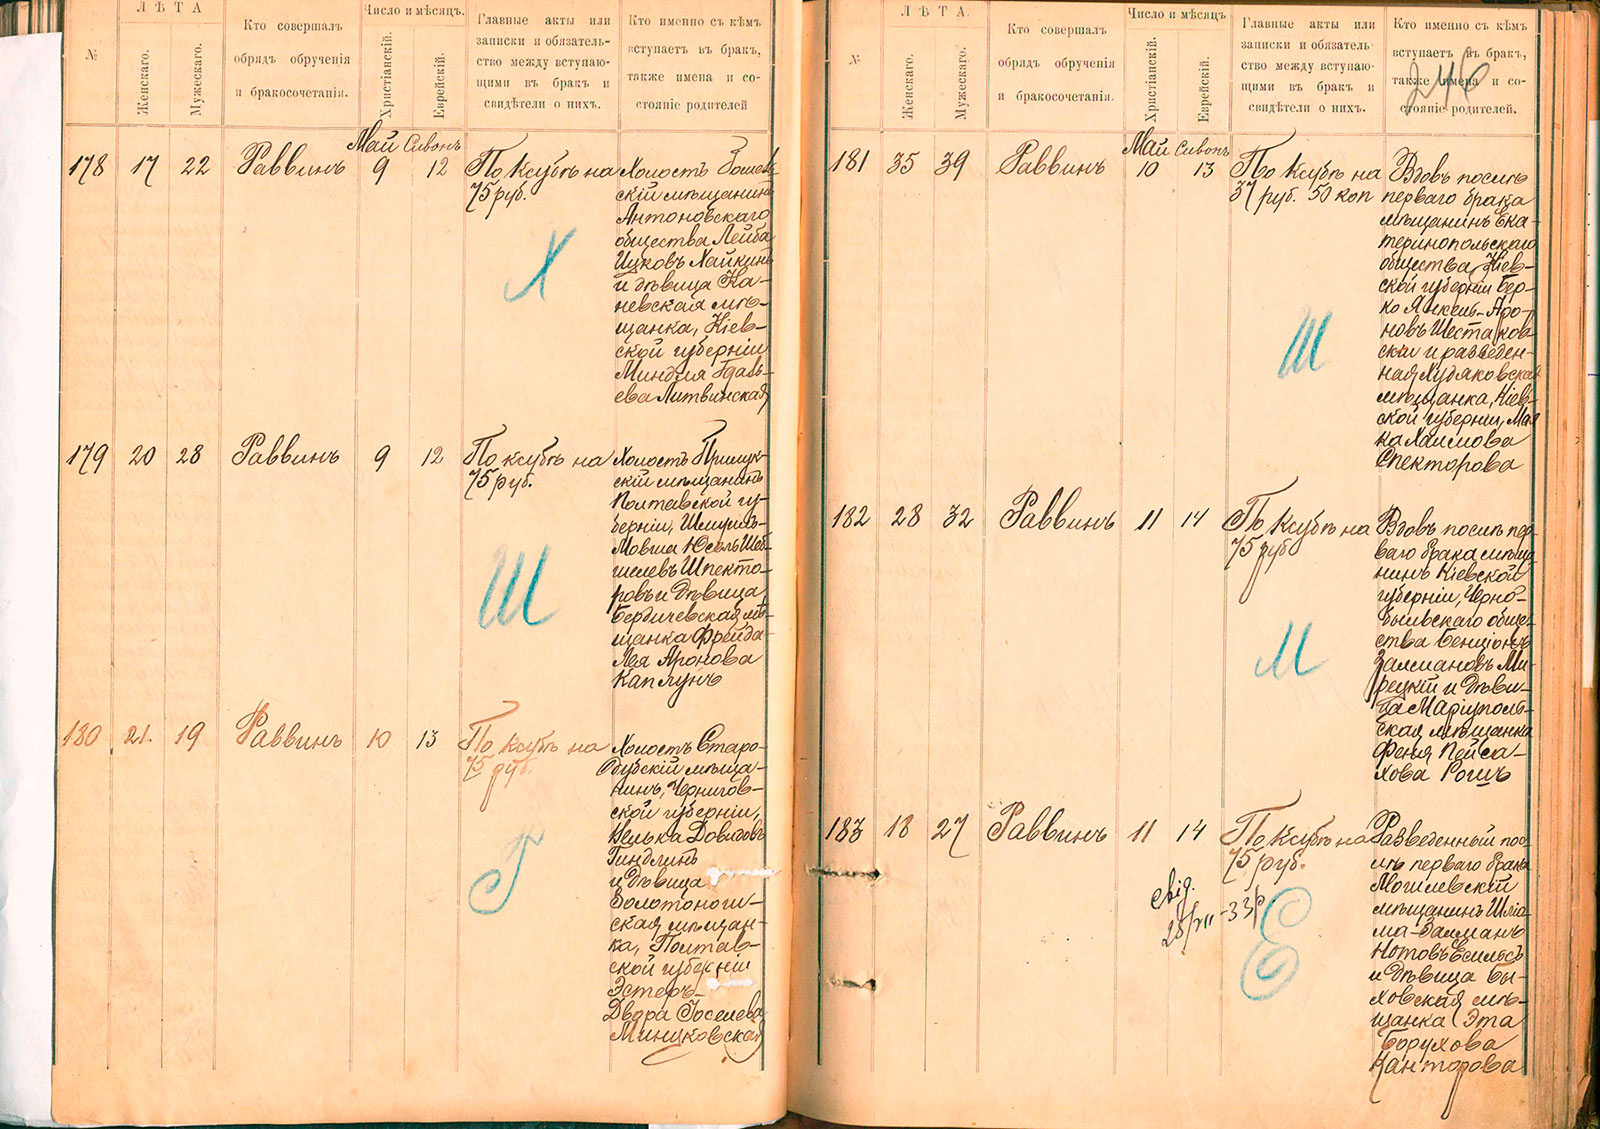 ЛѢТА
Число и мѣсяцъ.
№
Женскаго.
Мужескаго.
Кто совершалъ
обрядъ обрученія
и бракосочетанія.
Христіанскій.
Еврейскій.
Главные акты или
записки и обязатель-
ство между вступаю-
щими въ бракъ и
свидѣтели о нихъ.
Кто именно съ кѣмъ
вступаетъ въ бракъ,
также имена и со-
стояніе родителей
Май Сивонъ
178 17 22 Раввинъ 9 12
По ксубѣ на
75 руб.
Х
Холостъ
скій мѣщанинъ
Антоновскаго
общества Лейба
Ицковъ Хайкинъ
и дѣвица Ка-
невская мѣ-
щанка, Кіев-
ской губерніи
Миндля Гдаль-
ева Литвинская
179 20 28 Раввинъ 9 12
По ксубѣ на
75 руб.
Ш
Холостъ Прилук-
скій мѣщанинъ
Полтавской гу-
берніи, Шмуилъ-
Мовша Юсель Шеб-
шелевъ Шпекто-
ровъ и дѣвица
Бердичевская мѣ-
щанка Фрейда-
Лея Аронова
Каплунъ
180 21. 19 Раввинъ 10 13
По ксубѣ на
75 руб.
Г
Холостъ Старо-
дубскій мѣща-
нинъ, Чернигов-
ской губерніи,
Велька Довидовъ
Гиндлинъ
и дѣвица
Золотоно-
ская мѣщан-
ка, Полтав-
ской губерніи
Эстеръ-
Двора Іоселева
Минцковская
ЛѢТА.
Число и мѣсяцъ
№
Женскаго.
Мужескаго.
Кто совершалъ
обрядъ обрученія
и бракосочетанія.
Христіанскій.
Еврейскій.
Главные акты или
записки и обязатель-
ство между вступаю-
щими въ бракъ и
свидѣтели о нихъ.
Кто именно съ кѣмъ
вступаетъ въ бракъ,
также имена и со-
стояніе родителей.
246
Май Сивонъ
181 35 39 Раввинъ 10 13
По ксубѣ на
37 руб. 50 коп
Ш
Вдовъ послѣ
перваго брака
мѣщанинъ Ека-
теринопольскаго
общества, Кіев-
ской губерніи Бер-
ко Янкель-Аро-
новъ Шестаков-
скій и разведен-
ная Ходяковская
мѣщанка, Кіев-
ской губерніи, Мал
ка Хаимова
Спекторова
182 28 32 Раввинъ 11 14
По ксубѣ на
75 руб
М
Вдовъ послѣ пер-
ваго брака мѣща
нинъ Кіевской
губерніи, Черно-
быльскаго общес-
тва Бенціонъ
Залмановъ Ми-
рецкій и дѣви-
ца Маріуполь-
ская мѣщанка
Феня Пейса-
хова Рогиъ
183 18 27 Раввинъ 11 14
По ксубѣ на
75 руб.
свід.
Е
Разведенный пос-
лѣ перваго брака
Могилевскій
мѣщанинъ Шліо-
ма-Залманъ
Нотовъ
и дѣвица Бы-
ховская мѣ-
щанка Эта
Борухова
Канторова